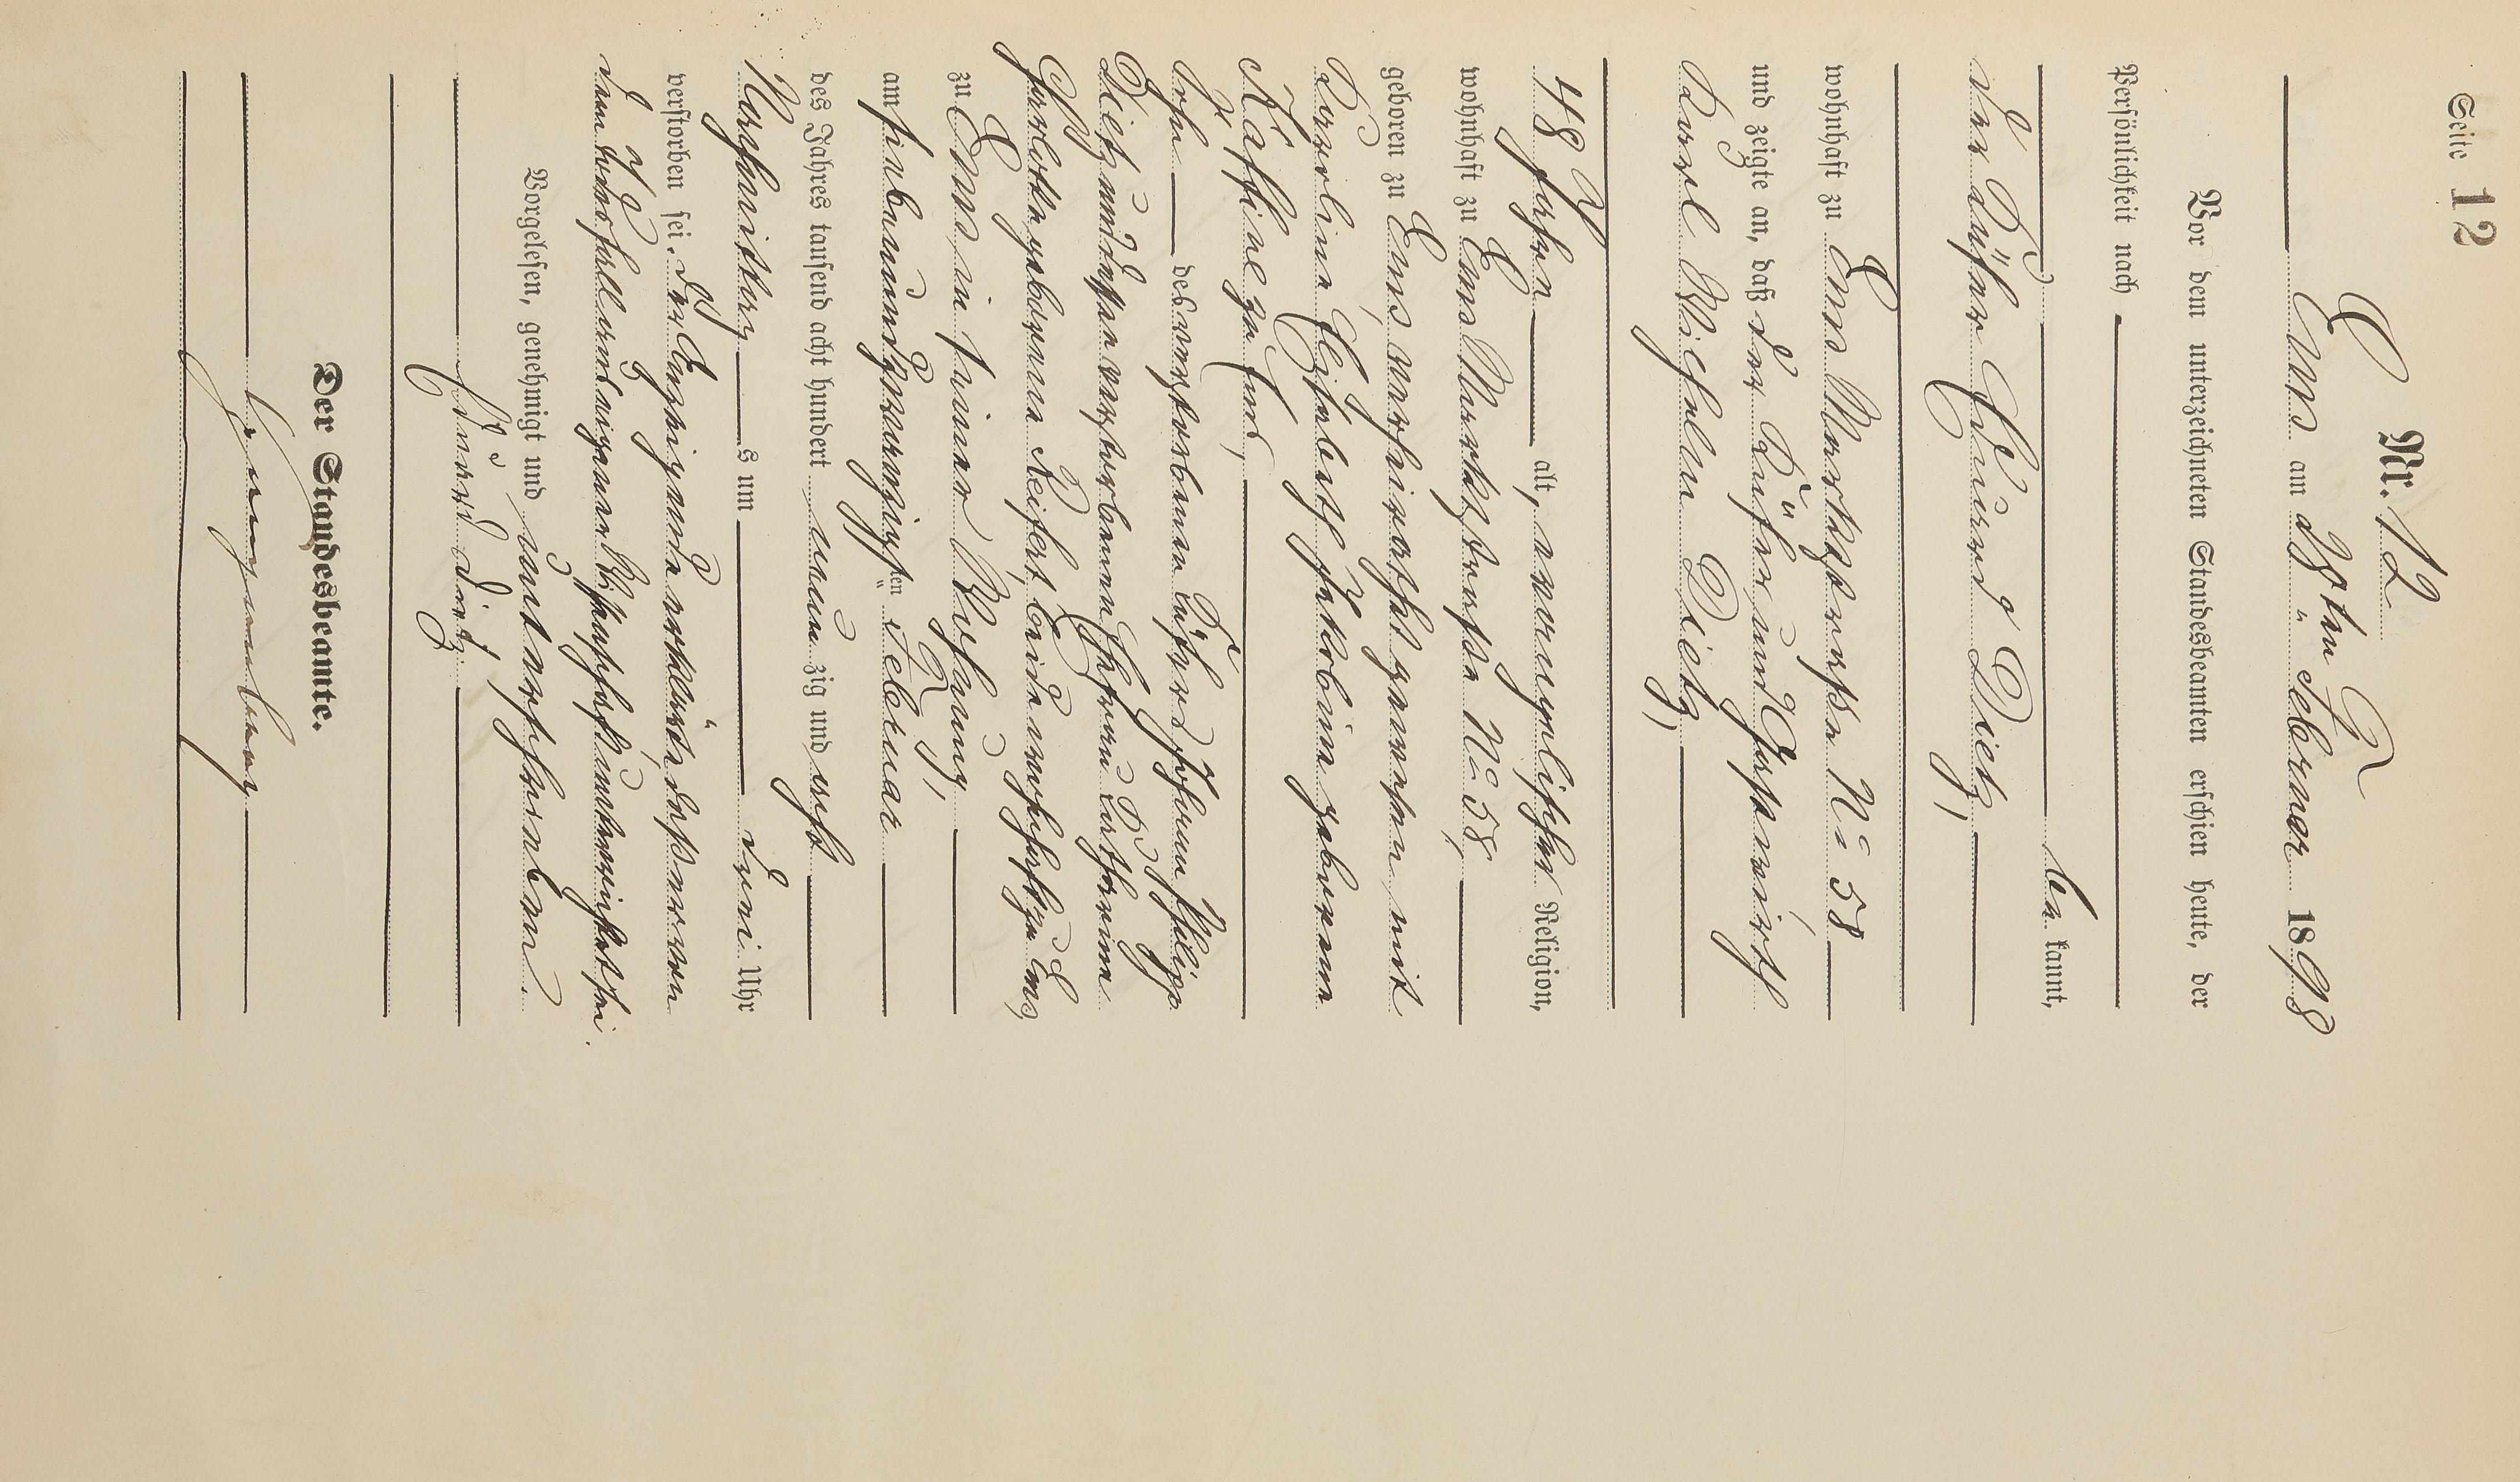 Seite 12
Nr. 12
Ems am 28ten Februar 1898
Vor dem unterzeichneten Standesbeamten erschien heute, der
Persönlichkeit nach
be kannt,
der Küfer Eduard Dietz,
wohnhaft zu Ems Marktstraße No 58
und zeigte an, daß der Küfer und Gastwirth
Karl Wilhelm Dietz,
48 Jahre alt, evangelischer Religion,
wohnhaft zu Ems Marktstraße No 58,
geboren zu Ems, verheirathet gewesen mit
Karoline Elisabeth Jakobine geborene
zu Ems,
Sohn des verstorbenen Küfers Johann Philipp
Dietz und dessen verstorbenen Ehefrau Katharine
Charlotte geborene Reifert, beide wohnhaft zu Ems,
zu Ems in seiner Wohnung,
am siebenundzwanzigsten Februar
des Jahres tausend acht hundert neun zig und acht
Nachmittags um drei Uhr
verstorben sei. Der Anzeigende erklärte, daß er von
dem Todesfall aus eigener Wissenschaft unterrichtet sei.
Vorgelesen, genehmigt und unterschrieben
Eduard Dietz.
Der Standesbeamte.